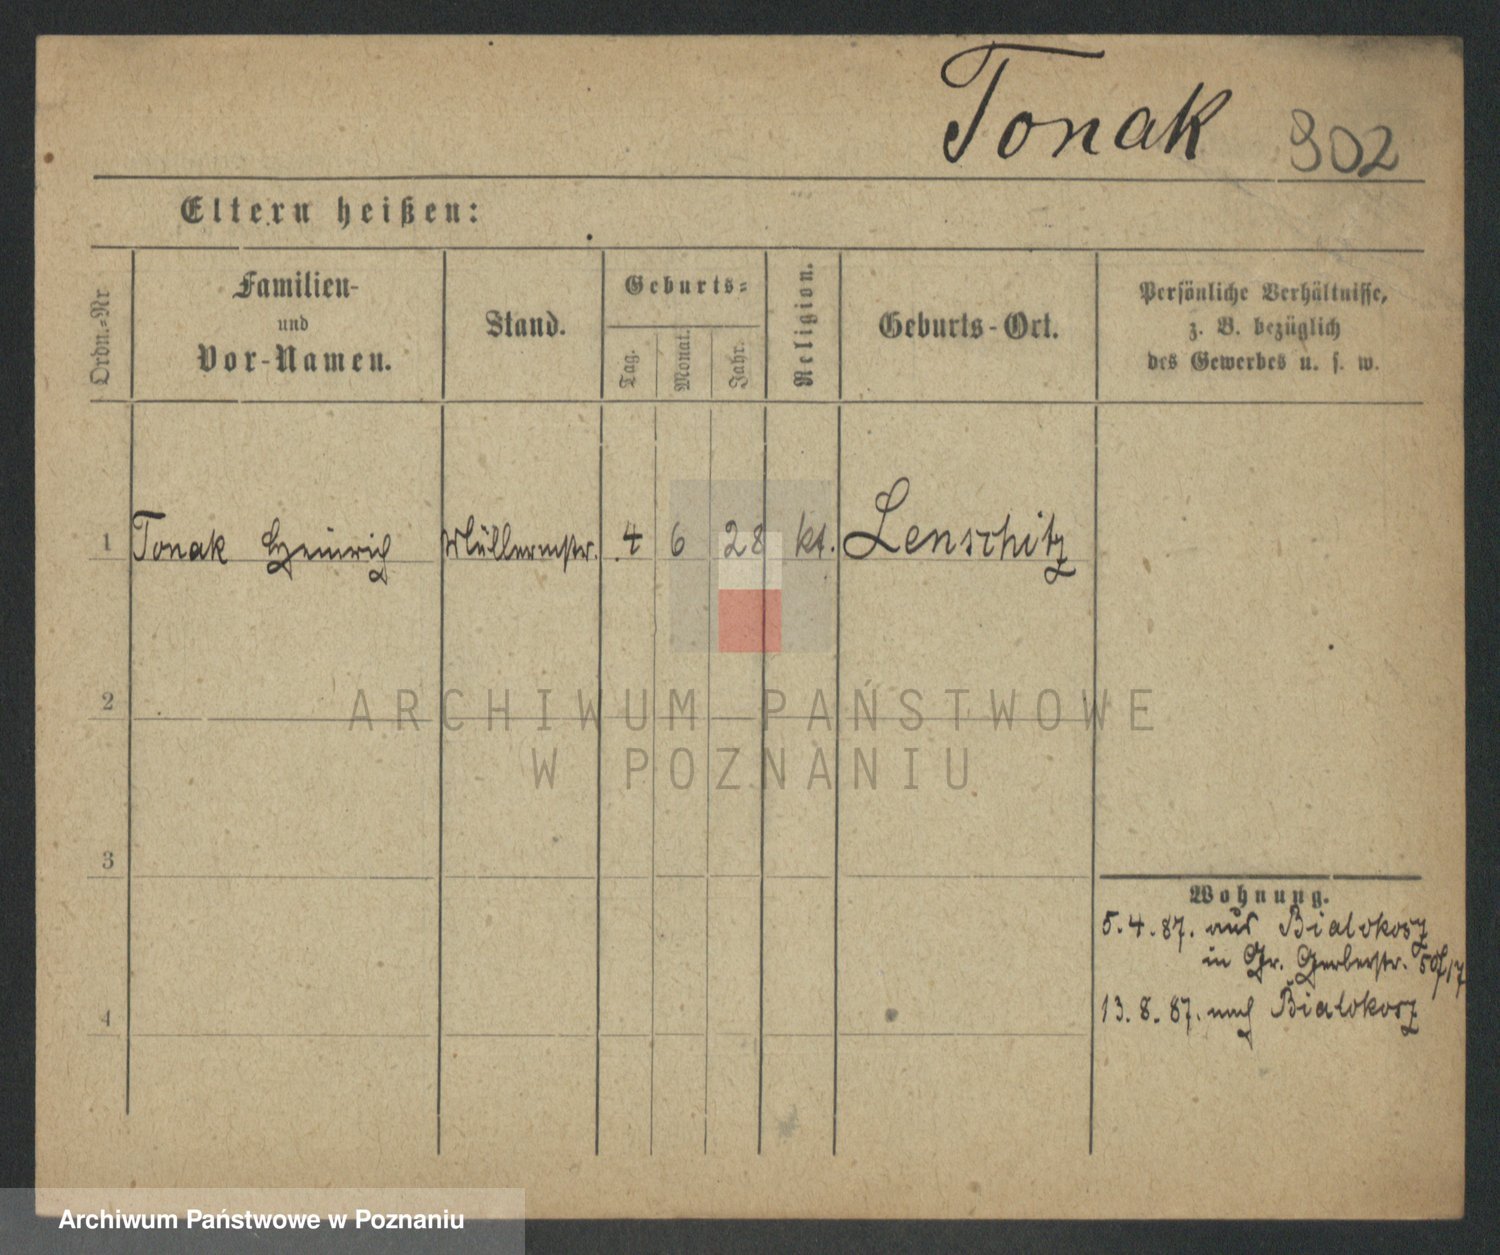 Tonak 302
Eltern heißen:
Ordn.=Nr
Familien-
und
Vor-Namen.
Stand.
Geburts=
Tag.
Monat.
Jahr.
Religion.
Geburts-Ort.
Persönliche Verhältnisse,
z. B. bezüglich
des Gewerbes u. s. w.
1 Tonak Heinrich Müllermstr. 4 6 28 kt. Lenschitz
2
3
4
Wohnung.
5.4.87. aus Bialokosz
in Gr. Gerberstr. 50/17
13.8.87. nach Bialokosz
ARCHIWUM PAŃSTWOWE
W POZNANIU
Archiwum Państwowe w Poznaniu